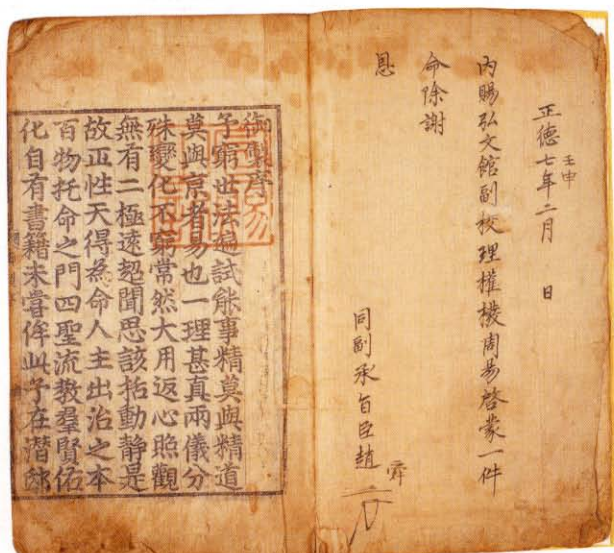 正德七年二月 日
壬申
內賜弘文館副校理權橃周易啓蒙一件
命除謝
恩
同副承旨臣趙
御製序
予窮世法遍試能事精莫與精道
莫與京者易也一理甚真兩儀分
殊變化不窮常然大用返心照觀
無有二極速超聞思該括動靜是
故正性天得為命人主出治之本
百物托命之門四聖流教羣賢佑
化自有書籍未嘗侔此予在潛邸